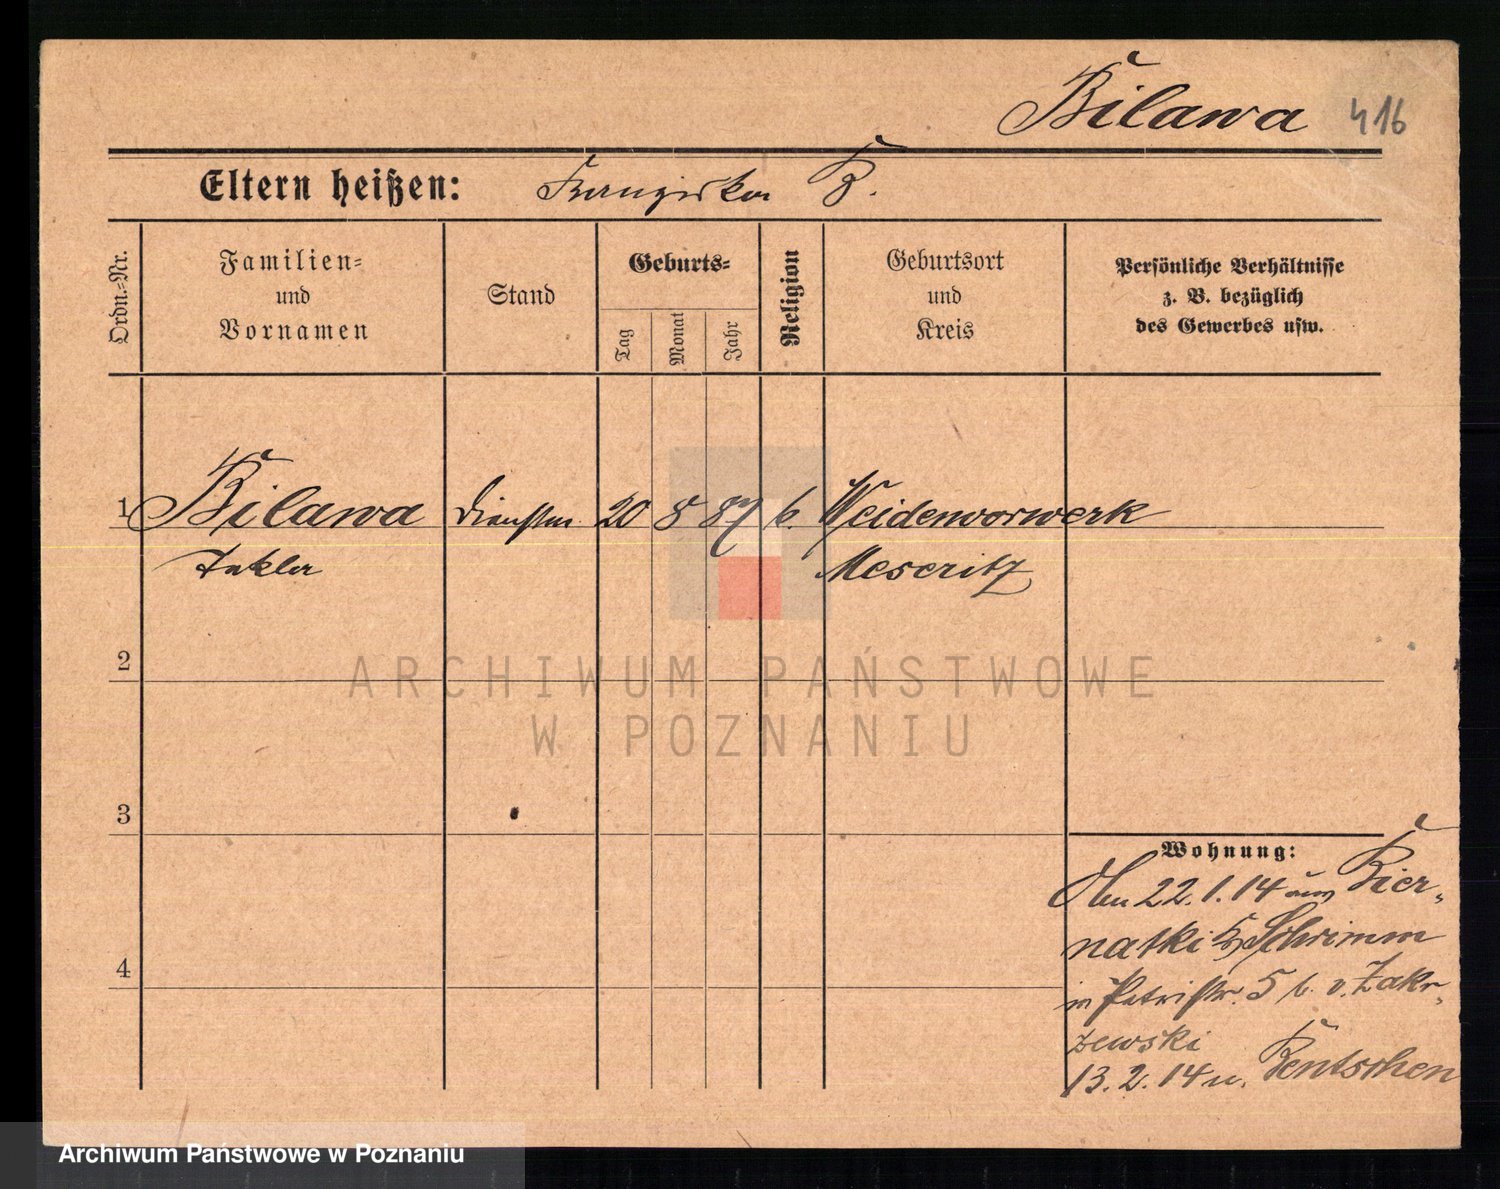 Bilawa 416
Eltern heißen: Franziska B.
Ordn.-Nr.
Familien-
und
Vornamen
Stand
Geburts-
Tag
Monat
Jahr
Religion
Geburtsort
und
Kreis
Persönliche Verhältnisse
z. B. bezüglich
des Gewerbes usw.
1 Bilawa Dienstm. 20 8 87 k. Weidenvorwerk
Meseritz
2
ARCHIWUM PAŃSTWOWE
W POZNANIU
3
Wohnung:
22.1.14 aus Bier-
natki Schrimm
in Petristr. 5 b. v. Zakr-
zewski
13.2.14 n. Bentschen
4
Archiwum Państwowe w Poznaniu